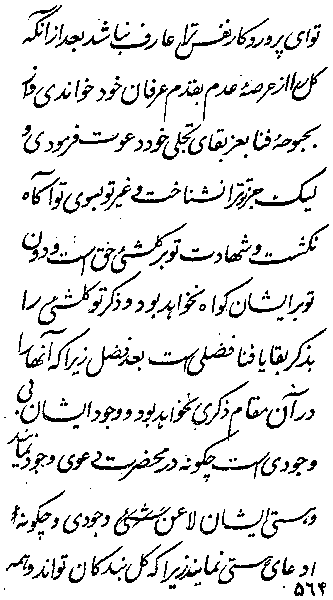 توای پروردگار نفس ترا عارف نباشد بعد از آنکه
کل را از عرصهٔ عدم بقدم عرفان خود خواندی واز
بحبوحهٔ فنا بعز بقای تجلی خود دعوت فرمودی و
لیک جز تو ترا نشناخت و غیر تو بسوی تو آگاه
نگشت و شهادت تو بر کلشیٔ حق است و دون
تو بر ایشان گواه نخواهد بود و ذکر تو کلشیٔ را
بذکر بقا یا فنا فضلی است بعد فضل زیرا که آنها را
در آن مقام ذکری نخواهد بود و وجود ایشان بی
وجودی است چگونه در محضرت دعوی وجود نمایند
و هستی ایشان لاعن شیٔ وجودی و چگونه
ادعای هستی نمایند زیرا که کل بندگان تواند و همه
۵۶۴